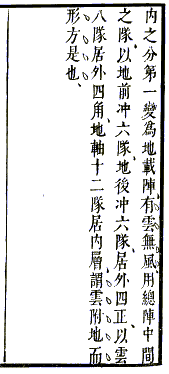 內之分第一變爲地載陣、有雲無風、用總陣中間
之隊、以地前冲六隊、地後冲六隊、居外四正、以雲
八隊居外四角、地軸十二隊居內層、謂雲附地而
形方是也、